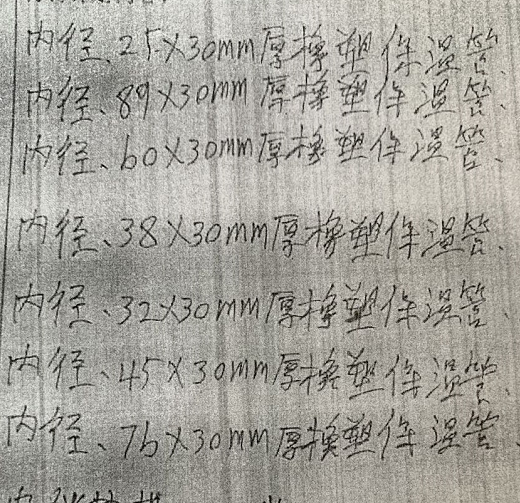 内径、25×30mm厚橡塑保温管、
内径、89×30mm厚橡塑保温管、
内径、60×30mm厚橡塑保温管、
内径、38×30mm厚橡塑保温管、
内径、32×30mm厚橡塑保温管、
内径、45×30mm厚橡塑保温管、
内径、76×30mm厚橡塑保温管、